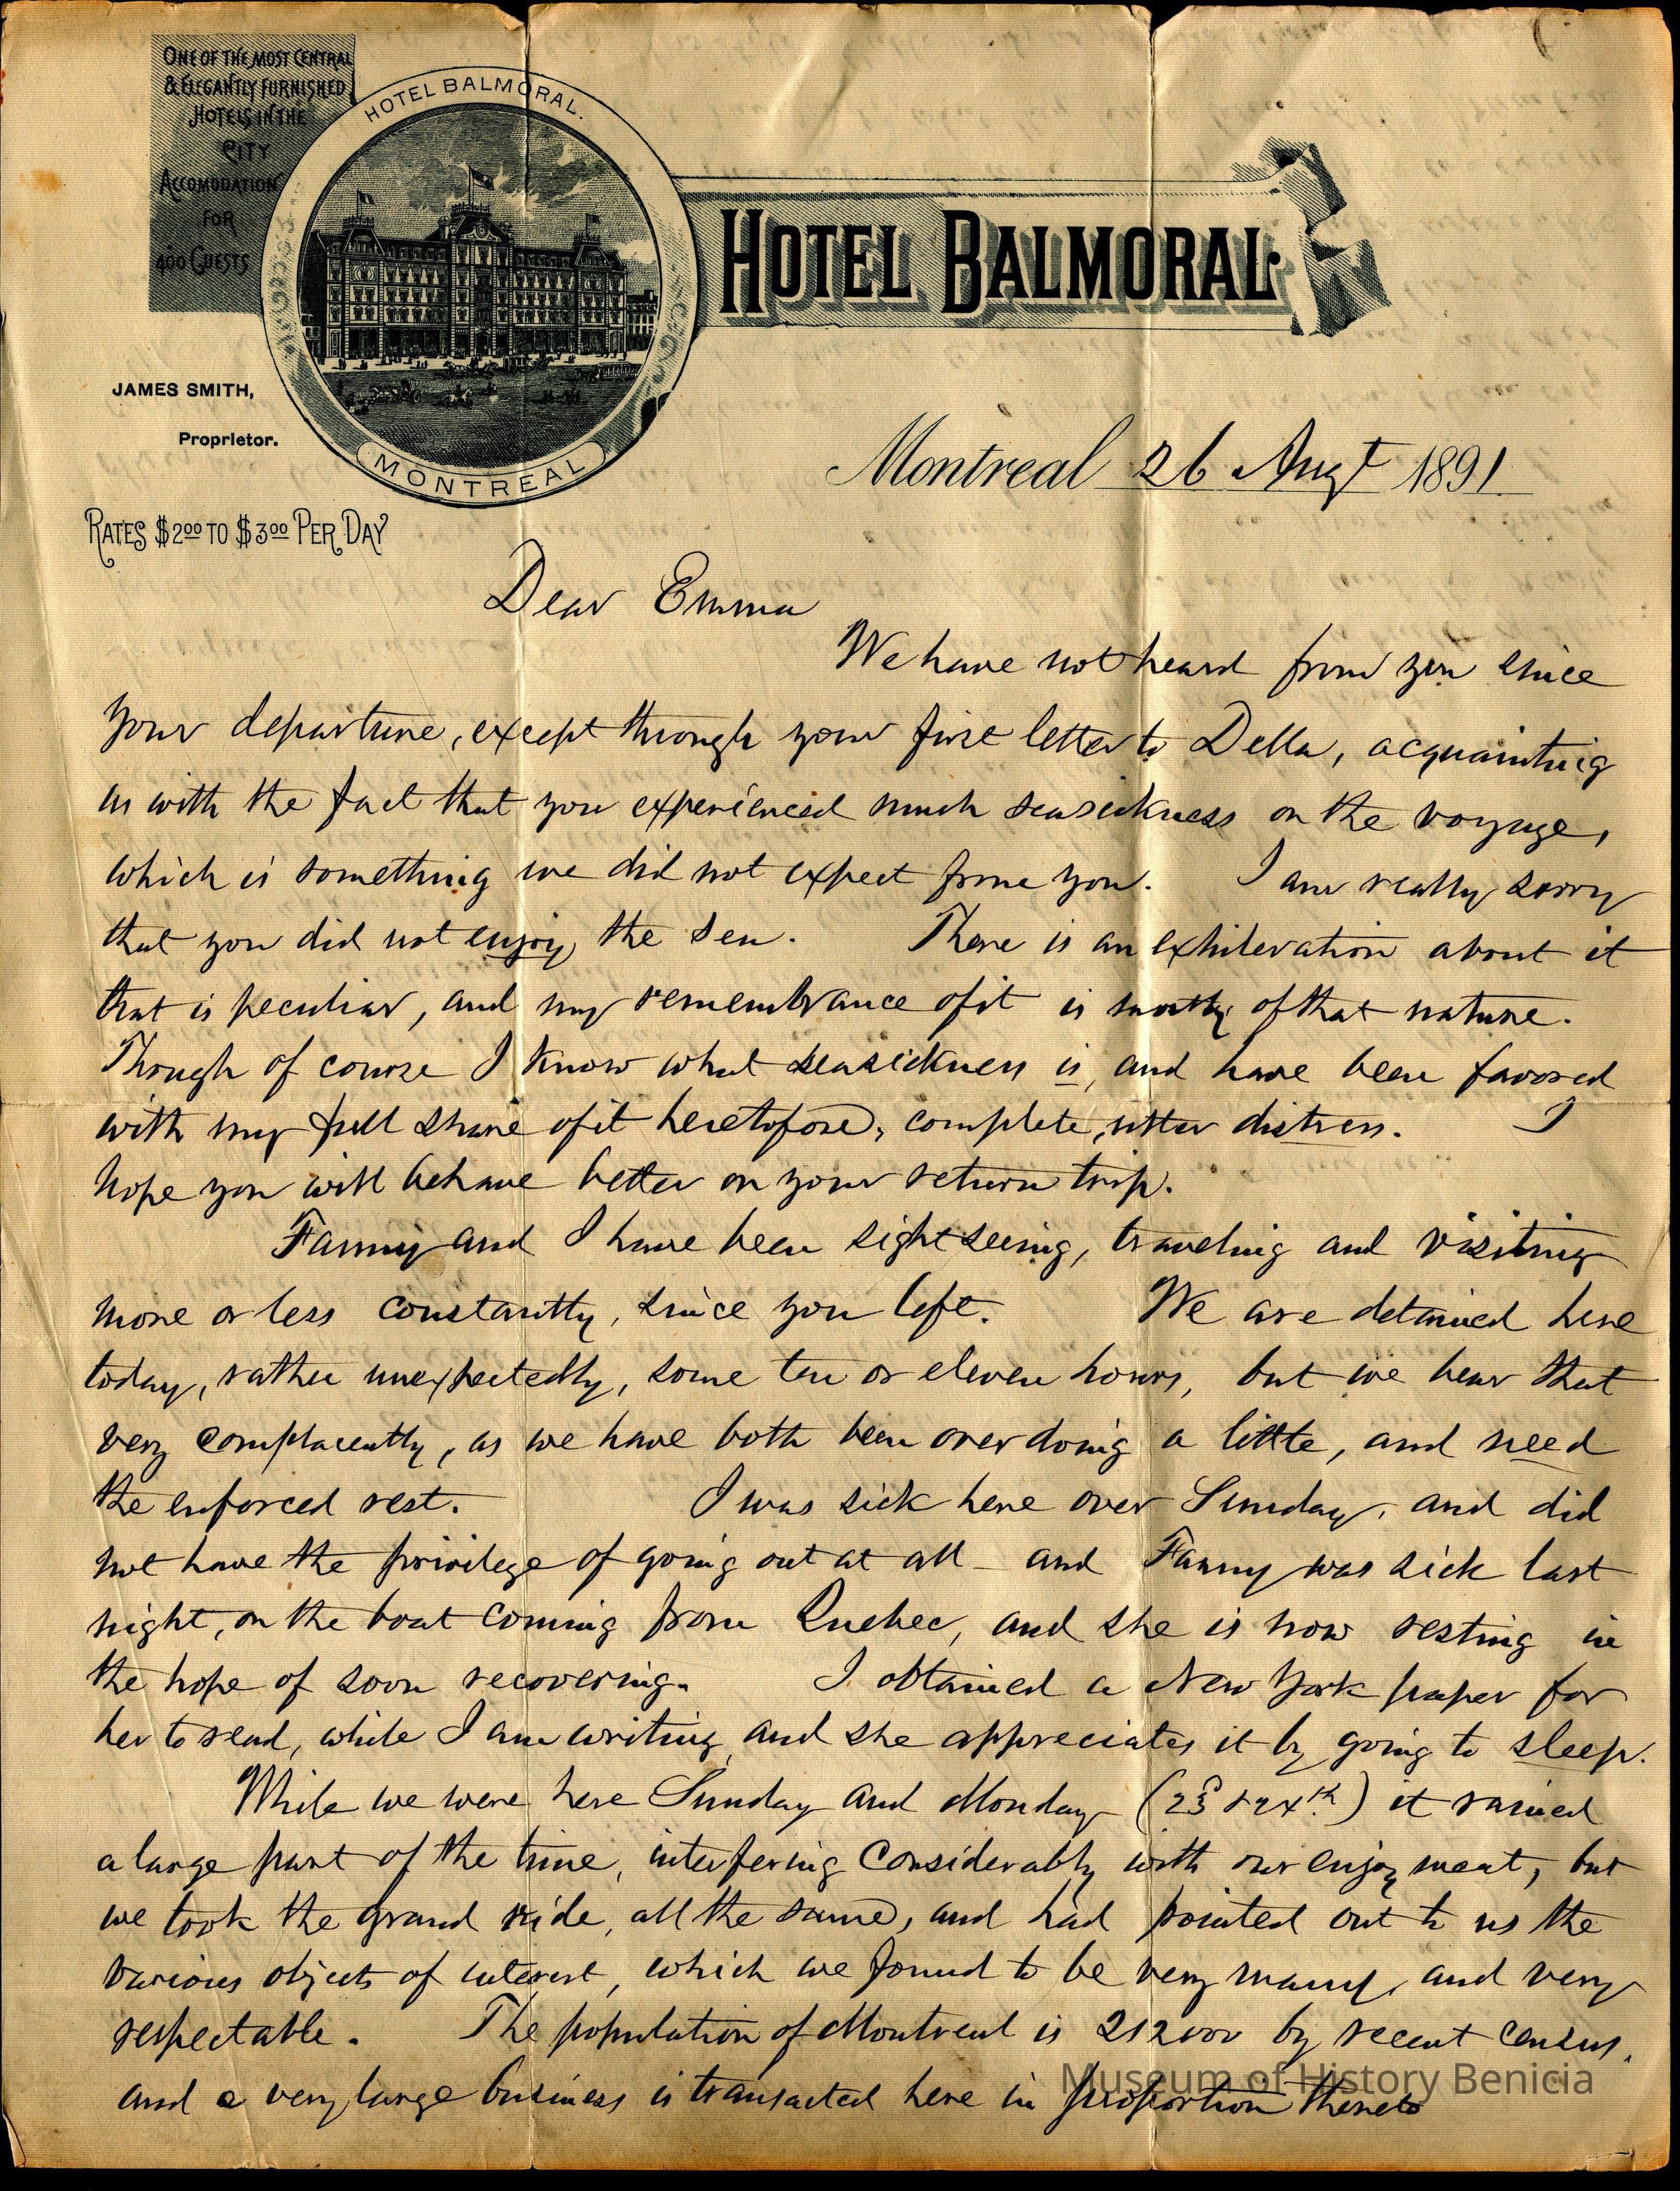 ONE OF THE MOST CENTRAL
& ELEGANTLY FURNISHED
HOTELS IN THE
CITY
ACCOMODATION
FOR
400 GUESTS
HOTEL BALMORAL.
MONTREAL
HOTEL BALMORAL.
JAMES SMITH,
Proprietor.
RATES $2.00 TO $3.00 PER DAY
Montreal 26 Augt 1891
Dear Emma
We have not heard from you since
your departure, except through your first letter to Della, acquainting
us with the fact that you experienced much seasickness on the voyage,
which is something we did not expect from you. I am really sorry
that you did not enjoy the sea. There is an exhileration about it
that is peculiar, and my remembrance of it is mostly of that nature.
Though of course I know what seasickness is, and have been favored
with my full share of it heretofore, complete, utter distress. I
hope you will behave better on your return trip.
Fanny and I have been sightseeing, traveling and visiting
more or less constantly, since you left. We are detained here
today, rather unexpectedly, some ten or eleven hours, but we bear that
very complacently, as we have both been over doing a little, and need
the enforced rest. I was sick here over Sunday, and did
not have the privilege of going out at all - and Fanny was sick last
night, on the boat coming from Quebec, and she is now resting in
the hope of soon recovering. I obtained a New York paper for
her to read, while I am writing, and she appreciates it by going to sleep.
While we were here Sunday and Monday (23d & 24th) it rained
a large part of the time, interfering considerably with our enjoyment, but
we took the grand ride, all the same, and had pointed out to us the
various objects of interest, which we found to be very many, and very
respectable. The population of Montreal is 212000 by recent census,
and a very large business is transacted here in proportion thereto
Museum of History Benicia